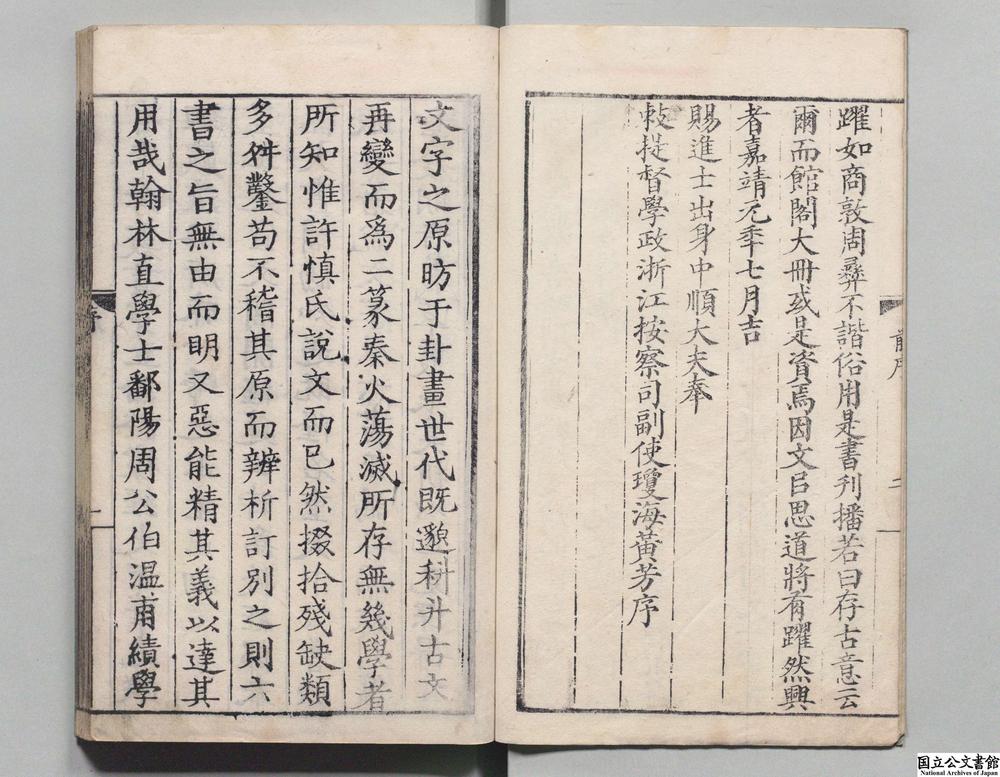 躍如商敦周彞不諧俗用是書刋播若曰存古意云
爾而館閣大冊或是資焉因文㠯思道將有躍然興
者嘉靖元秊七月吉
賜進士出身中順大夫奉
敕提督學政浙江按察司副使瓊海黃芳序
前序
二
文字之原昉于卦畫世代既邈科斗古文
再變而爲二篆秦火蕩滅所存無幾學者
所知惟許愼氏說文而已然掇拾殘缺類
多舛鑿苟不稽其原而辨析訂別之則六
書之旨無由而明又惡能精其義以達其
用哉翰林直學士鄱陽周公伯温甫績學
序
一
国立公文書館
National Archives of Japan